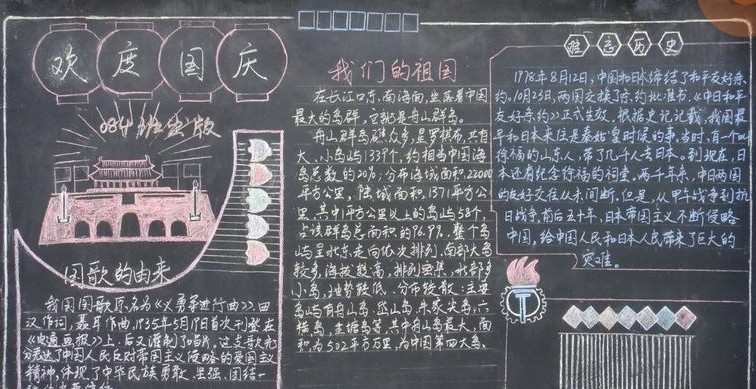 欢度国庆
084班出版
国歌的由来
我国国歌原名为《义勇军进行曲》,田
汉作词,聂耳作曲,1935年5月19日首次刊登在
《电通画报》上,后又灌制了唱片,这支歌充
分表达了中国人民反对帝国主义侵略的爱国主义
精神,体现了中华民族勇敢、坚强、团结一
我们的祖国
在长江口东,南海面,坐落着中国
最大的岛群,它就是舟山群岛。
舟山群岛礁众多,星罗棋布,共有
大、小岛屿1339个,约相当中国海
岛总数的20%;分布海域面积22000
平方公里,陆域面积1371平方公
里。其中1平方公里以上的岛屿58个,
占该群岛总面积的96.9%。整个岛
屿呈北东走向依次排列。南部大岛
较多,海拔较高,排列密集,北部多
小岛,地势较低,分布较散;主要
岛屿有舟山岛、岱山岛、朱家尖岛、六
横岛、金塘岛等,其中舟山岛最大,面
积为502平方公里,为中国第四大岛。
难忘历史
1978年8月12日,中国和日本缔结了和平友好条
约。10月23日,两国交换了条约批准书,《中日和平
友好条约》正式生效。根据史记记载,我国最
早和日本来往是秦始皇时候的事,当时,有一个叫
徐福的山东人,带了几千人去日本。到现在,日
本还有纪念徐福的祠堂。两千年来,中日两国
的友好交往从未间断。但是,从甲午战争到抗
日战争前后五十年,日本帝国主义不断侵略
中国,给中国人民和日本人民带来了巨大的
灾难。